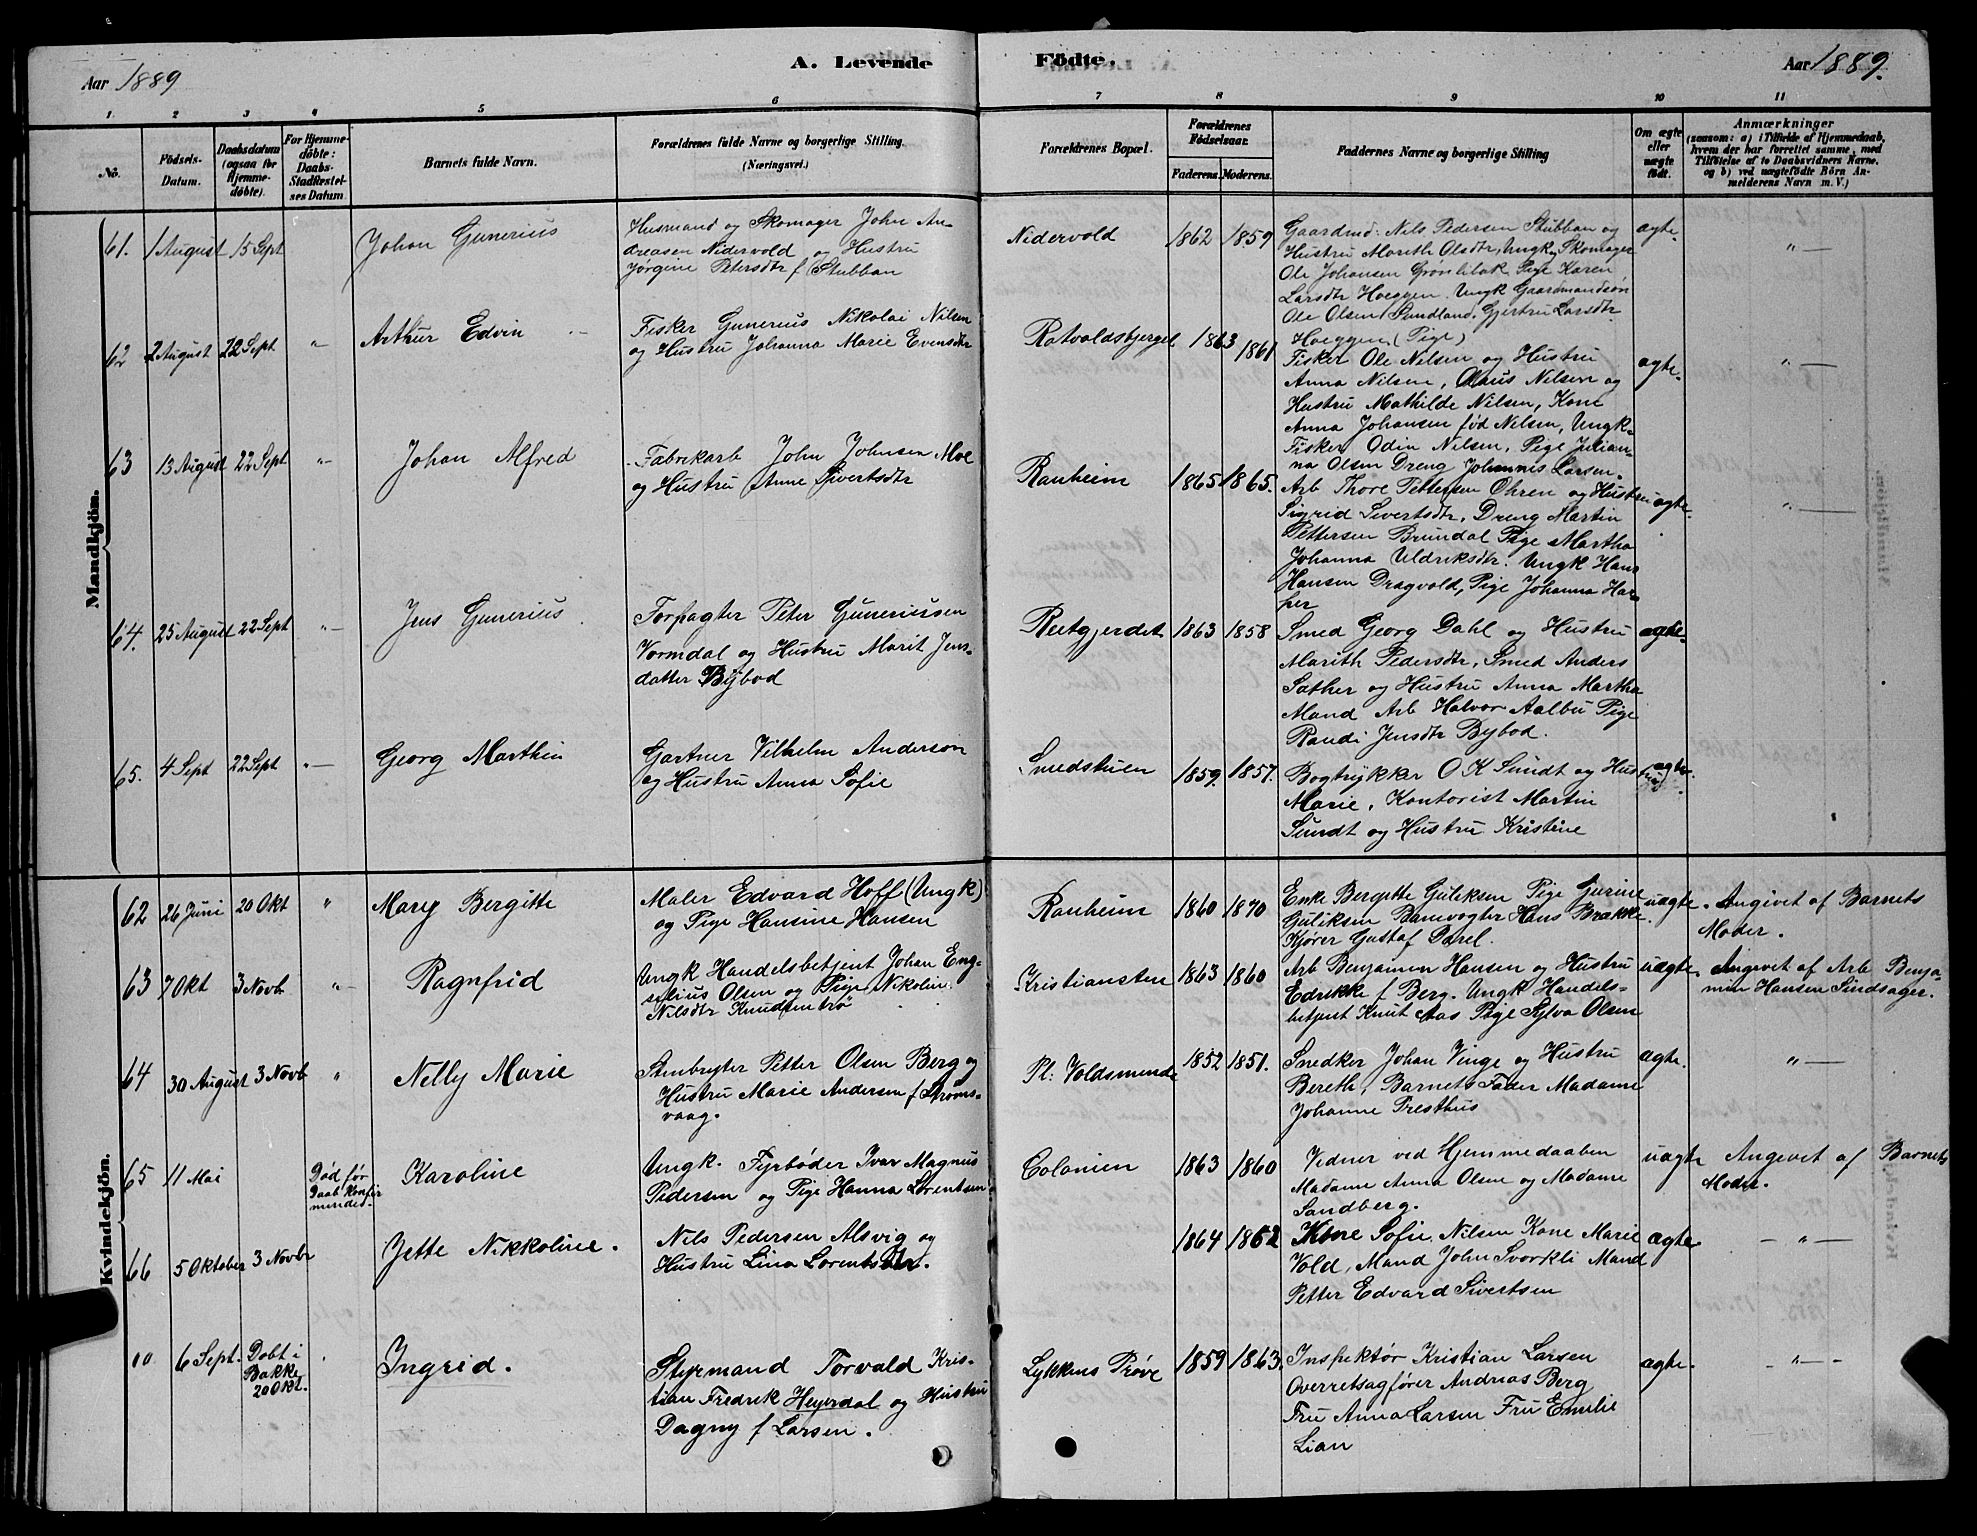 Aar 1889
A. Levende Födte.
Aar 1889.
1 2 3 4 5 6 7 8 9 10 11
No.
Födsels-Datum.
Daabsdatum (ogsaa for Hjemme-döbte).
For Hjemme-döbte: Daabs-Stadfæstel-ses Datum
Barnets fulde Navn.
Forældrenes fulde Navne og borgerlige Stilling. (Næringsvei.)
Forældrenes Bopæl.
Forældrenes Födselsaar.
Faderens. Moderens.
Faddernes Navne og borgerlige Stilling
Om ægte eller uægte födt.
Anmærkninger
(saasom: a) i Tilfælde af Hjemmedaab,
hvem der har forrettet samme, med
Tilföielse af to Daabsvidners Navne.
og b) ved uægtefödte Börn An-
melderens Navn m. V.)
Mandkjön.
61. 1 August 15 Sept
Johan Gunerius
Husmand og Skomager John An-
dreasen Nidervold og Hustru
Jørgine Petersdtr f Stubban
Nidervold 1862 1859
Gaardmd: Nils Pedersen Stubban og
Hustru Marith Olsdtr, Ungk Skomager
Ole Johansen Grønlibak, Pige Karen
Larsdtr Hoeggen. Ungk Gaardmandsøn
Ole Olsen Sundland, Gjertru Larsdtr
Hoeggen (Pige)
ægte. " —
62 2 August 22 Sept "
Arthur Edvin
Fisker Gunerius Nikolai Nilsen
og Hustru Johanna Marie Evensdtr
Rotvoldsbjerget 1863 1861
Fisker Ole Nilsen og Hustru
Anna Nilsen, Olaus Nilsen og
Hustru Mathilde Nilsen, Kone
Anna Johansen fød Nilsen, Ungk-
Fisker Odin Nilsen, Pige Julian-
na Olsen Dreng Johannis Larsen.
ægte. " —
63 13 August 22 Sept " —
Johan Alfred
Fabrikarb John Johnsen Moe
og Hustru Anne Sivertsdtr
Ranheim 1865 1865.
Arb Thore Pettersen Ohren og Hustru
Sigrid Sivertsdtr, Dreng Martin
Pettersen Brundal Pige Martha
Johanna Uldriksdtr. Ungk Hans
Hansen Dragvold, Pige Johanna Har-
per
ægte. " —
64. 25 August 22 Sept " —
Jens Gunerius
Forpagter Peter Guneriussen
Vormdal og Hustru Marit Jens-
datter Bybod
Reitgjerdet 1863 1858
Smed Georg Dahl og Hustru
Marith Pedersdtr, Smed Anders
Sæther og Hustru Anna Martha
Mand Arb Halvor Aalbu Pige
Randi Jensdtr Bybod.
ægte.
65. 4 Sept 22 Sept " —
Georg Marthin
Gartner Vilhelm Anderson
og Hustru Anna Sofie
Smedstuen 1859. 1857.
Bogtrykker O K Sundt og Hustru
Marie, Kontorist Martin
Sundt og Hustru Kristine
ægte.
Kvindekjön.
62 26 Juni 20 Okt "
Mary Bergitte
Maler Edvard Hoff (Ungk)
og Pige Hansine Hansen
Ranheim 1860 1870
Enke Bergitte Guliksen Pige Gurine
Guliksen Banevogter Hans Brække
Kjører Gustaf Parel.
uægte. Angivet af Barnets
Moder.
63 7 Okt 3 Novb " —
Ragnfrid
Ungk Handelsbetjent Johan Eng-
selius Olsen og Pige Nikoline
Nilsdtr Knudsentrø
Kristiansten 1863 1860
Arb Benjamin Hansen og Hustru
Edrikke f Berg. Ungk Handels-
betjent Knut Aas Pige Sylva Olsen
uægte. Angivet af Arb Benja-
min Hansen Sindsager.
64 30 August 3 Novb "
Nelly Marie
Stenbryter Petter Olsen Berg og
Hustru Marie Andersen f Strøms-
vaag.
Pl: Voldsminde 1852 1851.
Snedker Johan Vinge og Hustru
Bereth, Barnets Fader Madame
Johanne Presthus
ægte. " —
65 11 Mai
Død før
Daab konfir
mered.
Karoline
Ungk. Fyrbøder Ivar Magnus
Pedersen og Pige Hanna Lorentsen
Colonien 1863 1860
Vidner ved Hjemmedaaben
Madame Anna Olsen og Madame
Sandberg.
uægte Angivet af Barnets
Moder.
66 5 Oktober 3 Novbr
Jette Nikkoline.
Nils Pedersen Alsvig og
Hustru Lina Lorentsdtr.
1864 1862
Kone Sofie Nilsen Kone Marie
Vold, Mand John Svorkli Mand
Petter Edvard Sivertsen
ægte — " —
10 6 Sept.
Døbt i
Bakke
20 Okt.
Ingrid.
Styrmand Torvald Kris-
tian Fredrik Heyerdal og Hustru
Dagny f Larsen.
Lykkens Prøve 1859 1863.
Inspektør Kristian Larsen
Overretsagfører Andreas Berg
Fru Anna Larsen Fru Emilie
Lian
ægte. — " —